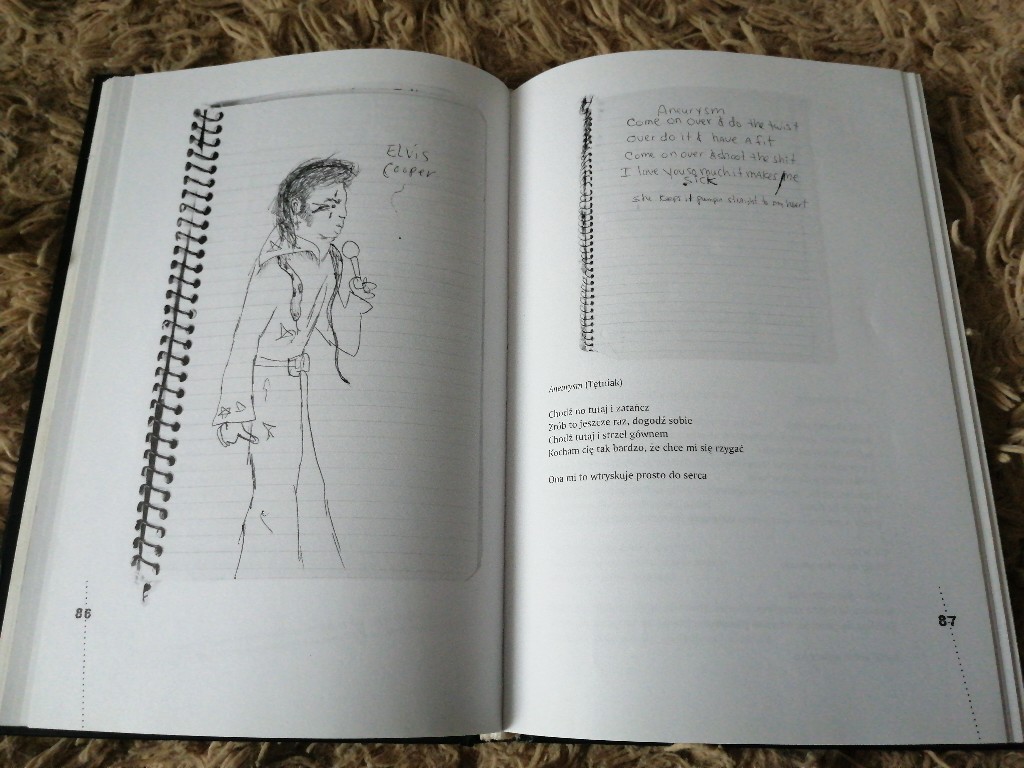 Elvis
Cooper
86
Aneurysm
Come on over & do the twist
over do it & have a fit
Come on over & shoot the shit
I love you so much it makes me
SICK
she keeps it pumpin straight to my heart
Aneurysm (Tętniak)
Chodź no tutaj i zatańcz
Zrób to jeszcze raz, dogódź sobie
Chodź tutaj i strzel gównem
Kocham cię tak bardzo, że chce mi się rzygać
Ona mi to wtryskuje prosto do serca
87